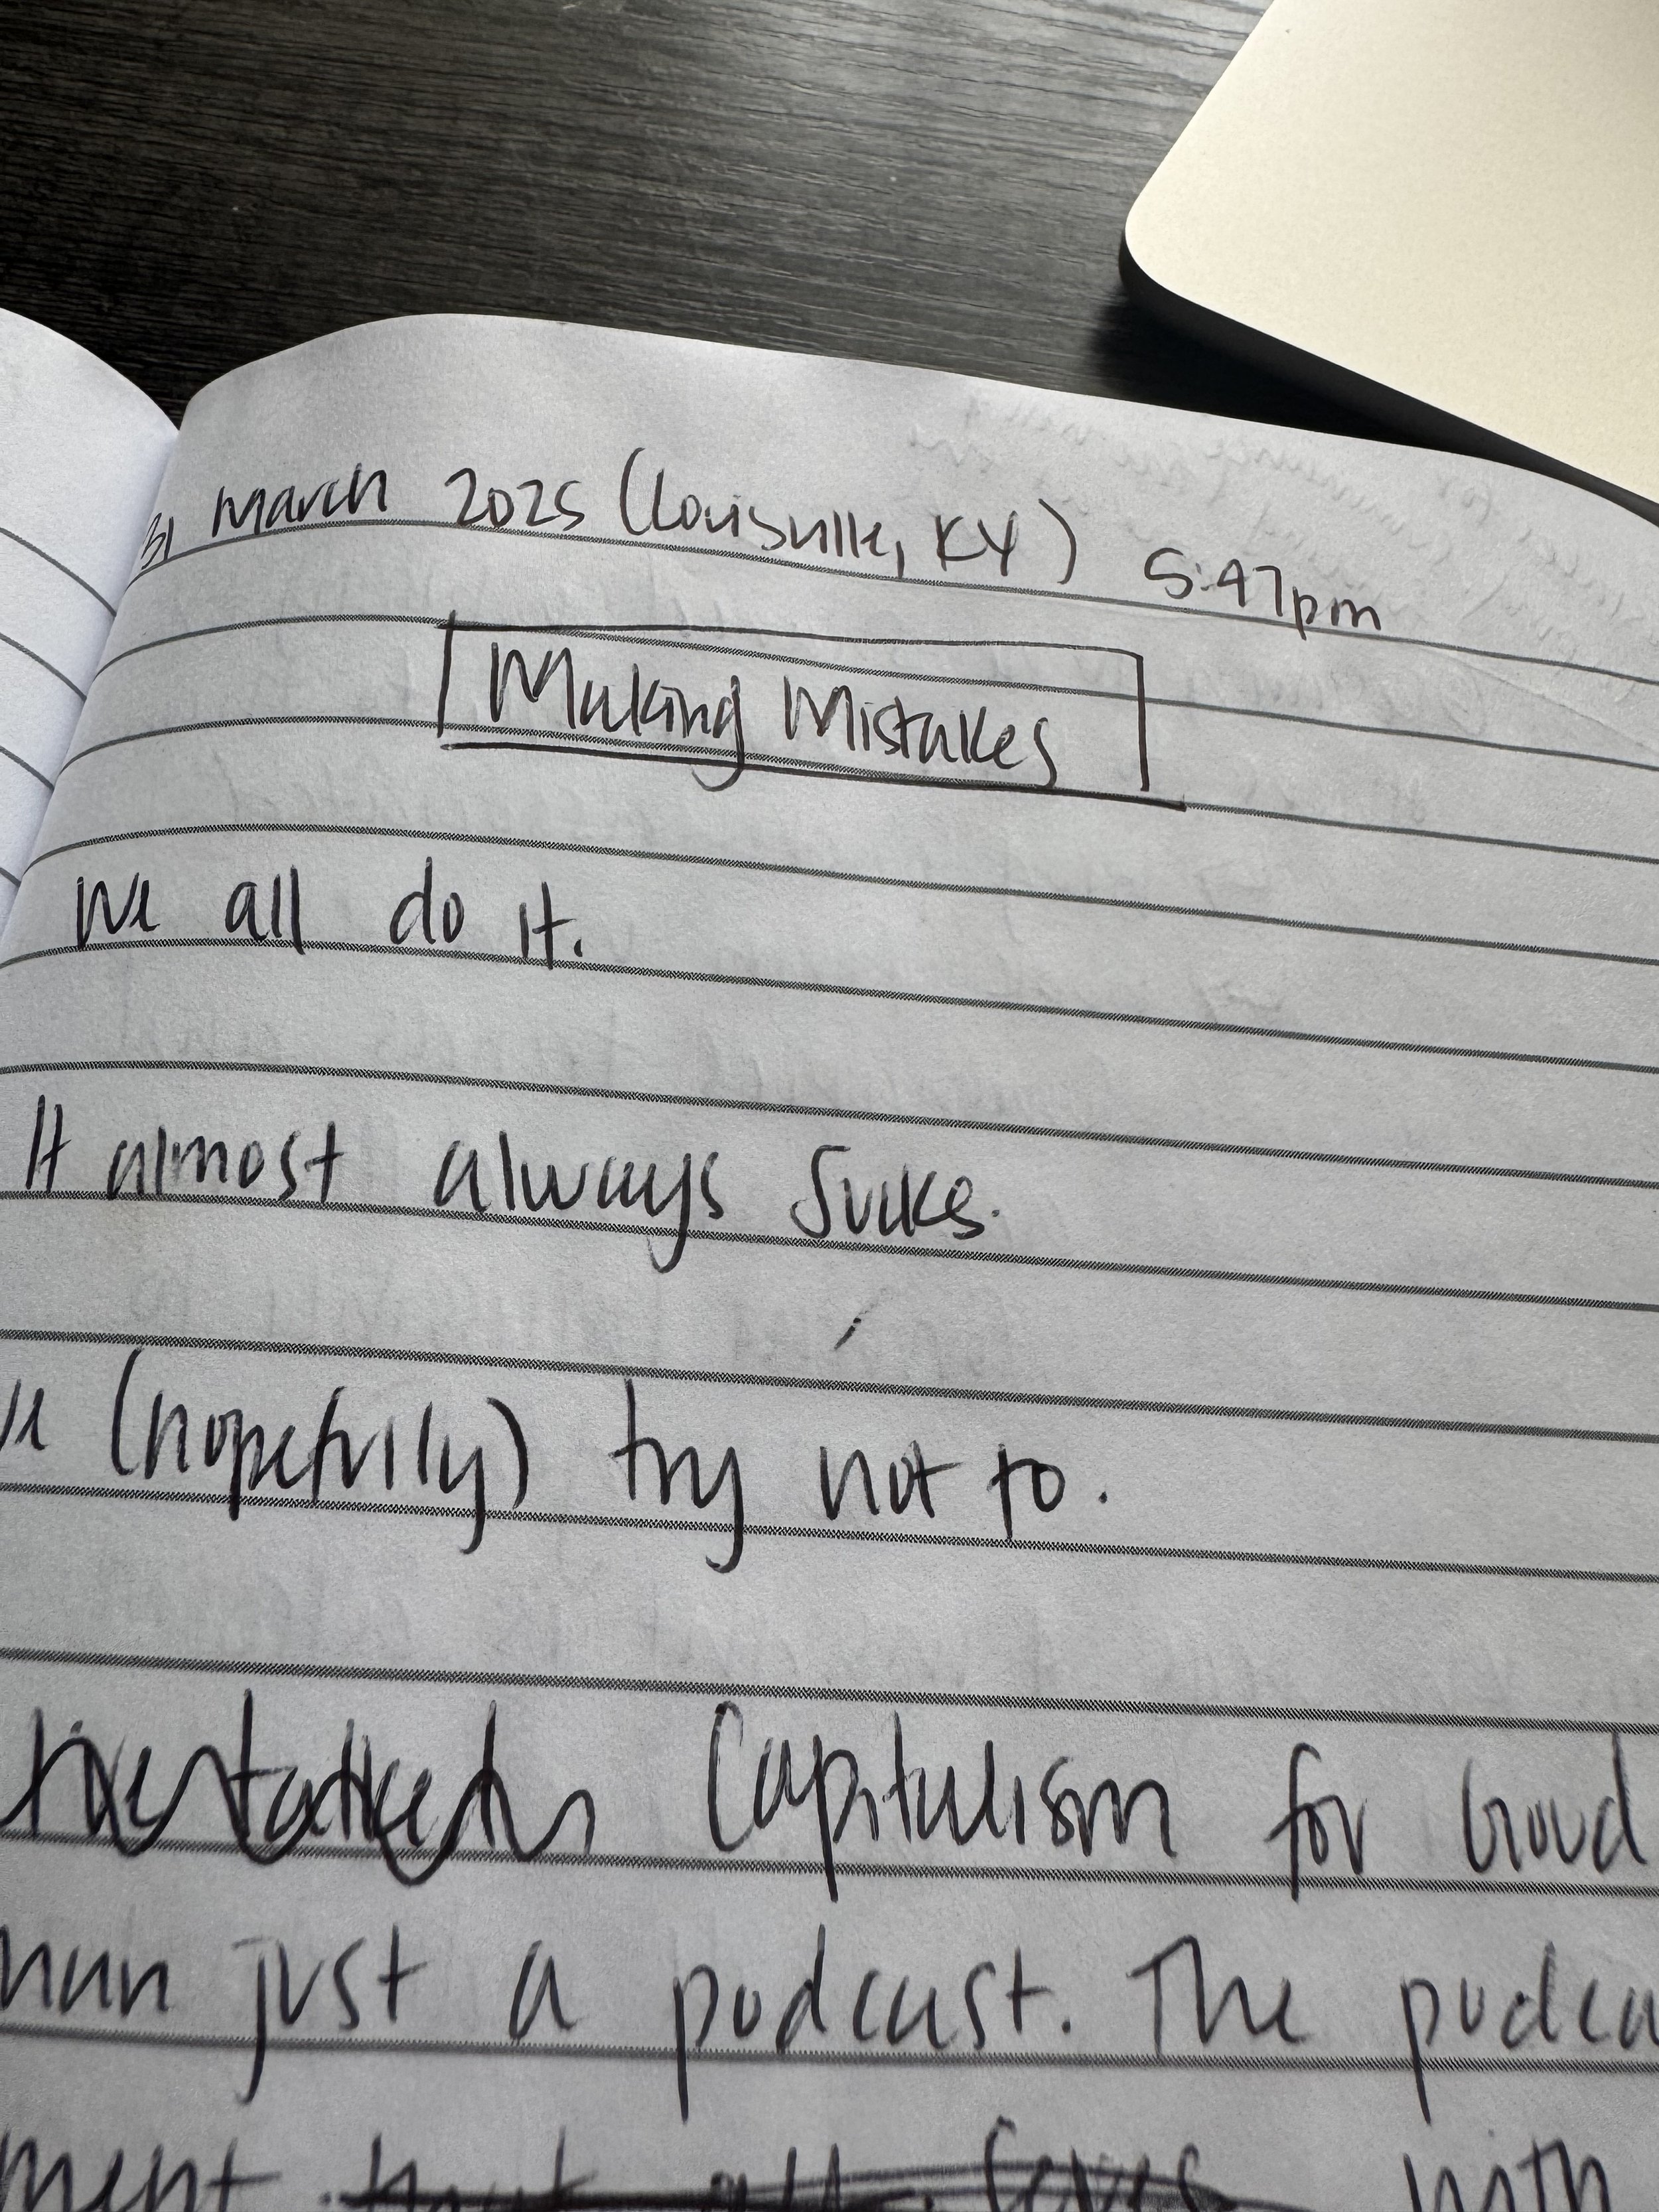 31 March 2025 (Louisville, KY) 5:47pm
Making Mistakes
We all do it.
It almost always sucks.
(hopefully) try not to.
Capitalism for Good
just a podcast. The
with